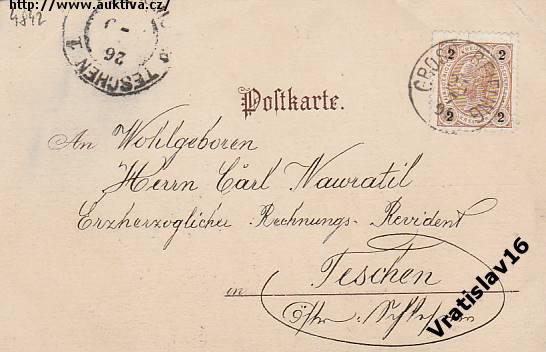 http://www.auktiva.cz/
4842
TESCHEN 1
26
2 2
2 2
GROSS
Postkarte.
An Wohlgeboren
Herrn Carl Nawratil
Erzherzoglicher Rechnungs-Revident
Teschen
in
Östr. Schlesien
Vratislav16